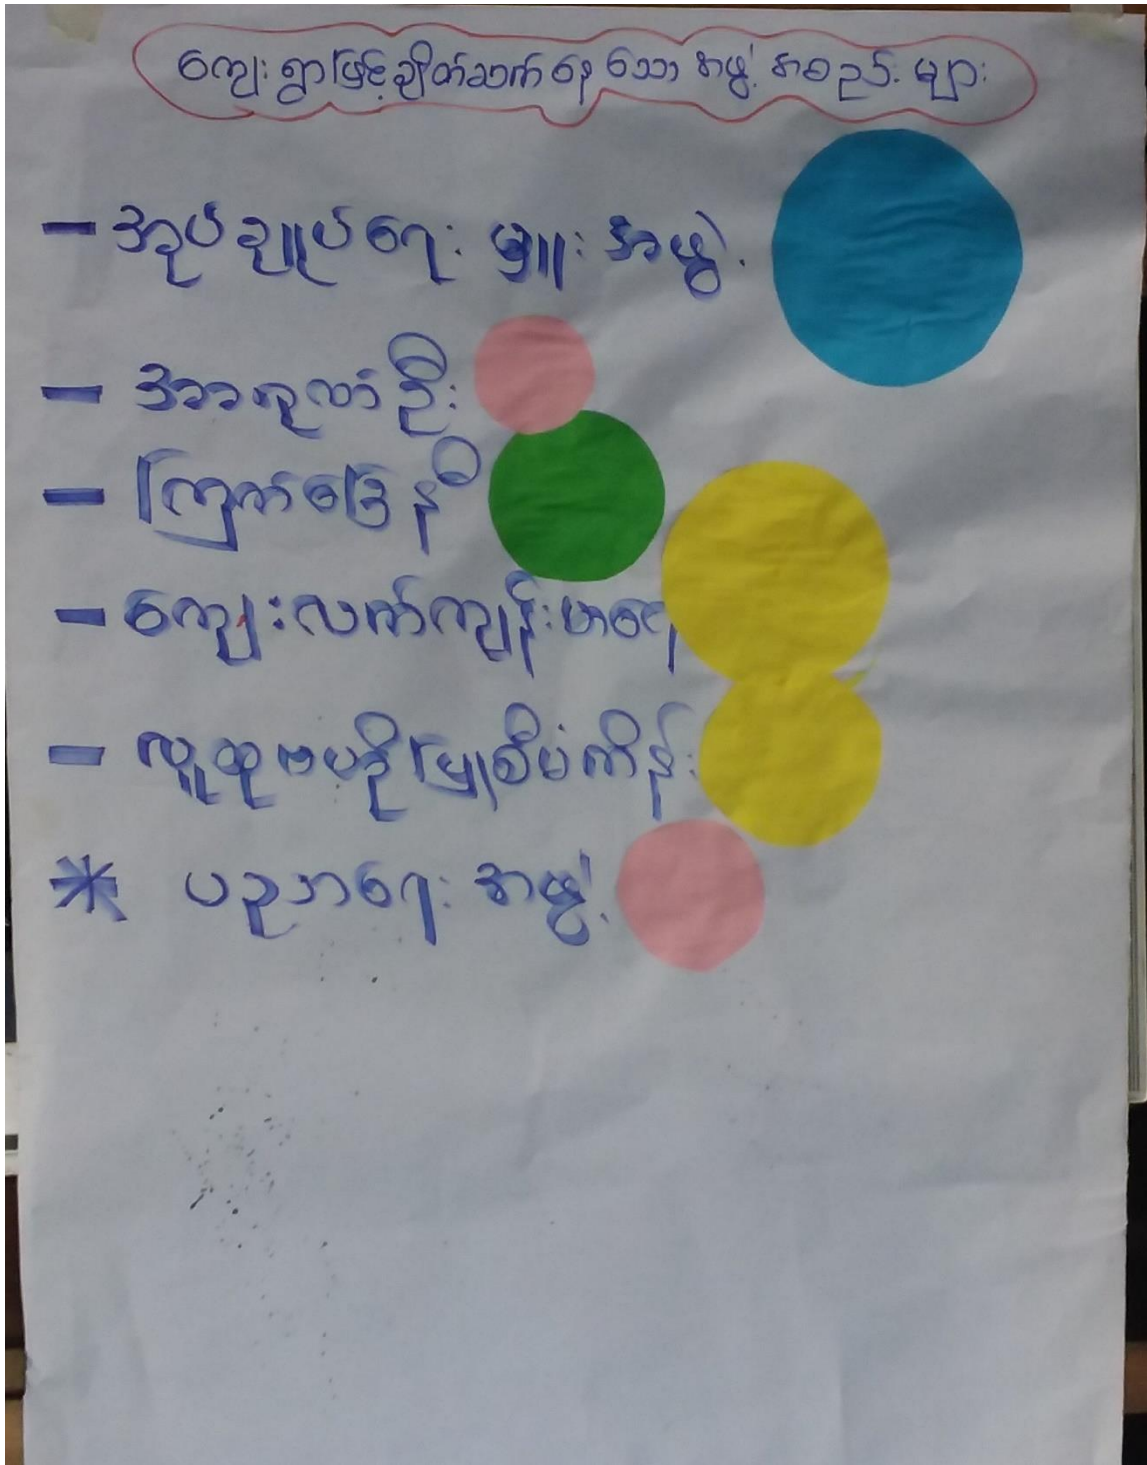 ကျေးရွာဖြင့်ချိတ်ဆက်နေသော အဖွဲ့ အစည်းများ
- အုပ်ချုပ်ရေးမှူးအဖွဲ့
- အာရုလာဦး
- ကြက်ခြေနီ
- ကျေးလက်ကျန်းမာရေ
- လူထုဗဟိုပြုစီမံကိန်း
* ပညာရေးအဖွဲ့